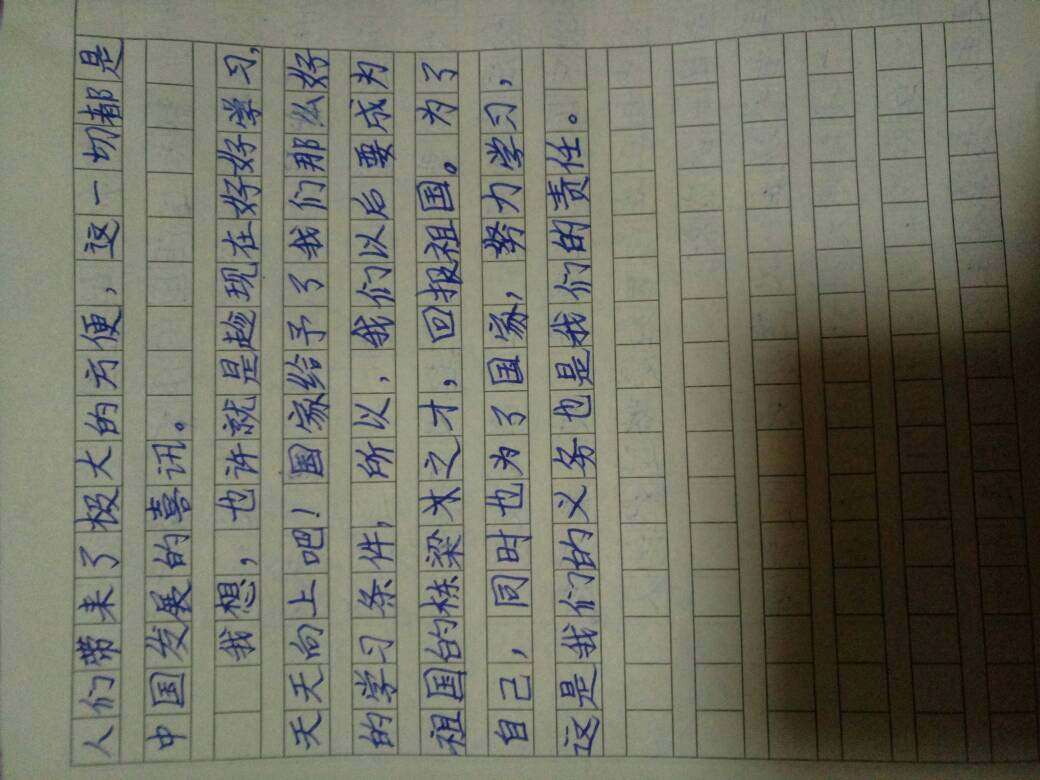 人们带来了极大的方便，这一切都是
中国发展的喜讯。
我想，也许就是趁现在好好学习，
天天向上吧！国家给予了我们那么好
的学习条件，所以，我们以后要成为
祖国的栋梁木之才，回报祖国。为了
自己，同时也为了国家，努力学习，
这是我们的义务也是我们的责任。